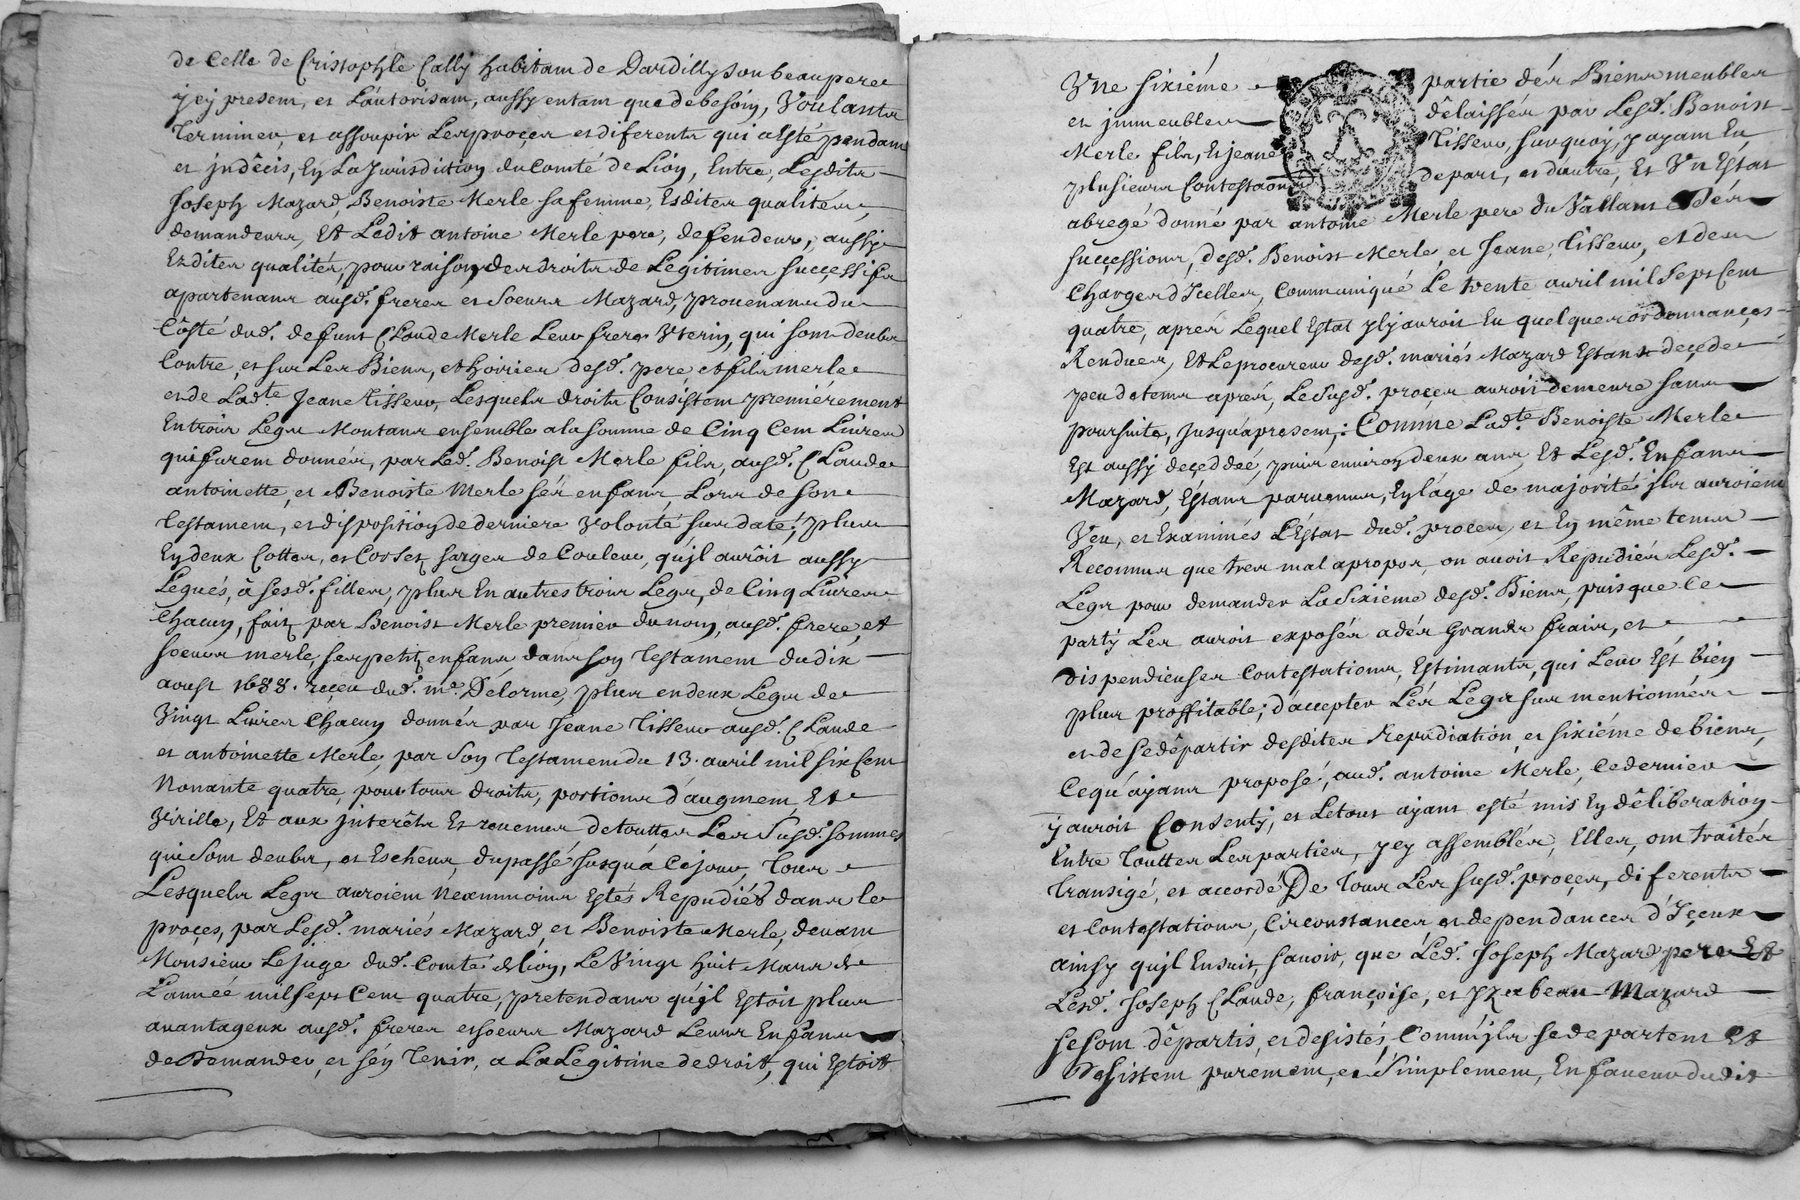 de Celle de Cristophle Cally habitant de Dardilly son beaupere
jcy present, et L'autorisant, aussy entant que de besoin, Voulants
Terminer, et assoupir Les proçes et diferents qui a Esté pendant
et jndêcis, En La Jurisdiction du Comté de Lion, Entre, Lesdits
Joseph Mazard, Benoiste Merle sa femme, Esdites qualités,
demandeurs, Et Ledit antoine Merle pere, defendeur, aussy
Esdites qualités, pour raison des droits de Legitimes successifs
apartenans ausd. freres et soeurs Mazard, prouenans du
Côsté dud. defunt Claude Merle Leur frere Vterin, qui sont deubs
Contre, et sur Les Biens, et hoiries desd. pere et fils merle
et de Ladte Jeane Tisseur, Lesquels droits Consistent premiérement
En trois Legs Montans ensemble a la somme de Cinq Cent Liures
qui furent donnés, par Led. Benoist Merle fils, ausd. Claude
antoinette, et Benoiste Merle sés enfans, Lors de son
Testament, et disposition de derniere Volonté sur daté; plus
En deux Cottes, et Corset sarges de Couleur, qu'jl aurôit aussy
Legués, à sesd. filles, plus En autres trois Legs, de Cinq Liures
Chacun, fait par Benoist Merle premier du nom, ausd. frere, et
soeurs merle, ses petits enfans, dans son Testament du dix
aoust 1688. reçeu dud. me. Delorme, plus en deux Legs de
Vingt Liures Chacun donnés par Jeane Tisseur ausd. Claude
et antoinette Merle, par Son Testament du 13. auril mil six Cent
Nonante quatre, pour tous droits, portions d'augment, Et
Virille, Et aux jnterêts Et reuenus de touttes Les Susd. sommes
qui sont deubs, et Escheus, du passé jusqu'à Ce jour, Tous
Lesquels Legs auroient Neanmoins Estés Repudiés dans le
proçes, par Lesd. mariés Mazard, et Benoiste Merle, deuant
Monsieur Le juge dud. Comté de lion, Le Vingt huit Mars de
L'année mil sept Cent quatre, pretendans qu'jl Estoit plus
auantageux ausd. freres et soeurs Mazard Leurs Enfans
de Demander, et s'en Tenir, a La Légitime de droit, qui Estoit
Vne sixiéme partie dés Biens meubles
et jmmeubles dêlaissés par Lesd. Benoist
Merle fils, Et jeane Tisseur, surquoy, y ayant Eu
plusieurs Contestaons de part, et d'autre, Et Vn Estat
abregé donné par antoine Merle pere du Vâllant Dés
successions, desd. Benoist Merle, et Jeane Tisseur, et des
Charges d'Jcelles, Communiqué Le trente auril mil Sept Cent
quatre, aprés Lequel Estat jl y auroit Eu quelques ordonnançes
Rendues, Et Le procureur desd. mariés Mazard Estant deçedé
peu de tems aprés, Le Susd. proçes auroit demeure sans
poursuite, jusqu'apresent; Comme Ladte Benoiste Merle
Est aussy deçeddeé, puis enuiron deux ans, Et Lesd. Enfans
Mazard, Estans paruenus, En l'âge de majorité jls auroient
Veu, et Examinés L'Estat dud. proçes, et En même tems
Reconnus que tres mal apropos, on auoit Repudiés Lesd.
Legs pour demander La Sixieme desd. Biens, puisque Ce
party Les auroit exposés a dés Grands frais, et
dispendieuses Contestations, Estimants, qui Leur Est bien
plus proffitable; d'accepter Lés Legs sus mentionnés
et de se départir desdites Repudiation, et sixiéme de biens,
Cequ'ayans proposé, aud. antoine Merle, Ce dernier
y auroit Consenty, et Letout ayant esté mis En dêliberation
Entre touttes Les parties, jcy assemblés, Elles, ont traités
Transigé, et accordé De tous Les susd. proçes, diferents
et Contestations, Circonstances et dependances d'Jçeux
ainsy qu'jl Ensuit, sauoir, que Led. Joseph Mazard pere Et
Lesd. Joseph Claude, françoise, et Yzabeau Mazard
se sont dêpartis, et desistés, Comm'jls se departent Et
Desistent purement, et Simplement, En faueur dudit